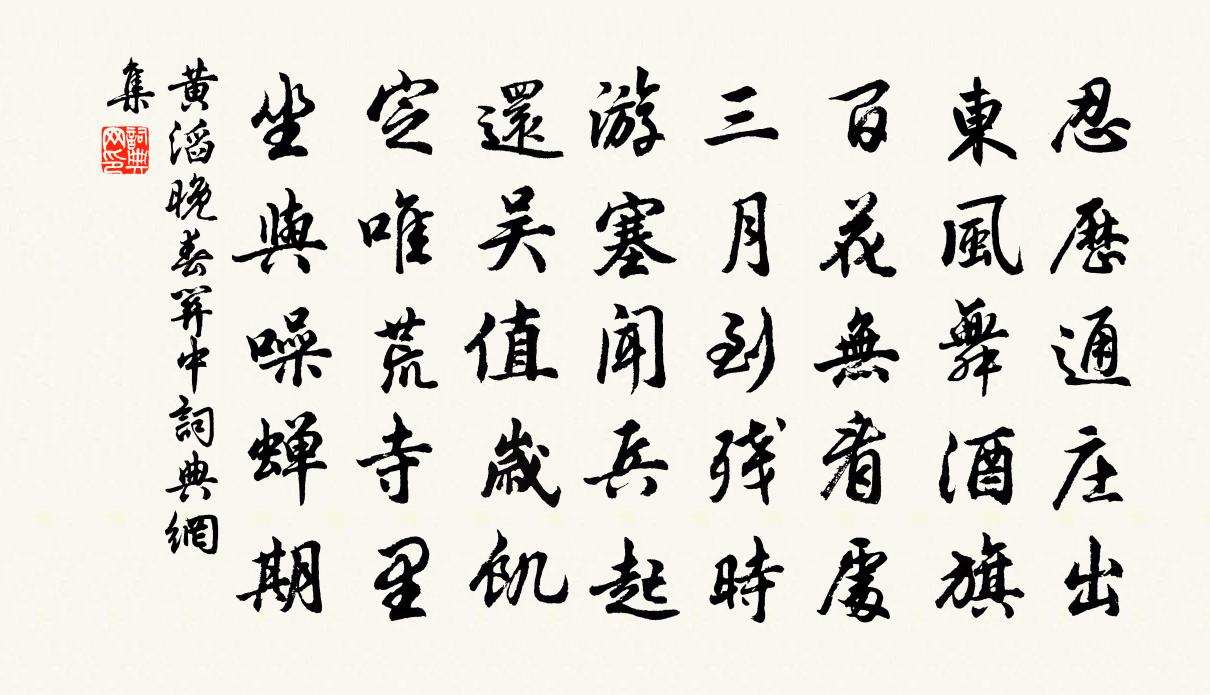 忍歷通庄出
東風舞酒旗
百花無看處
三月到残時
游塞聞兵起
還吴值歲飢
定唯荒寺里
坐與噪蝉期
黄滔晚春關中詞典網
集
詞典网印